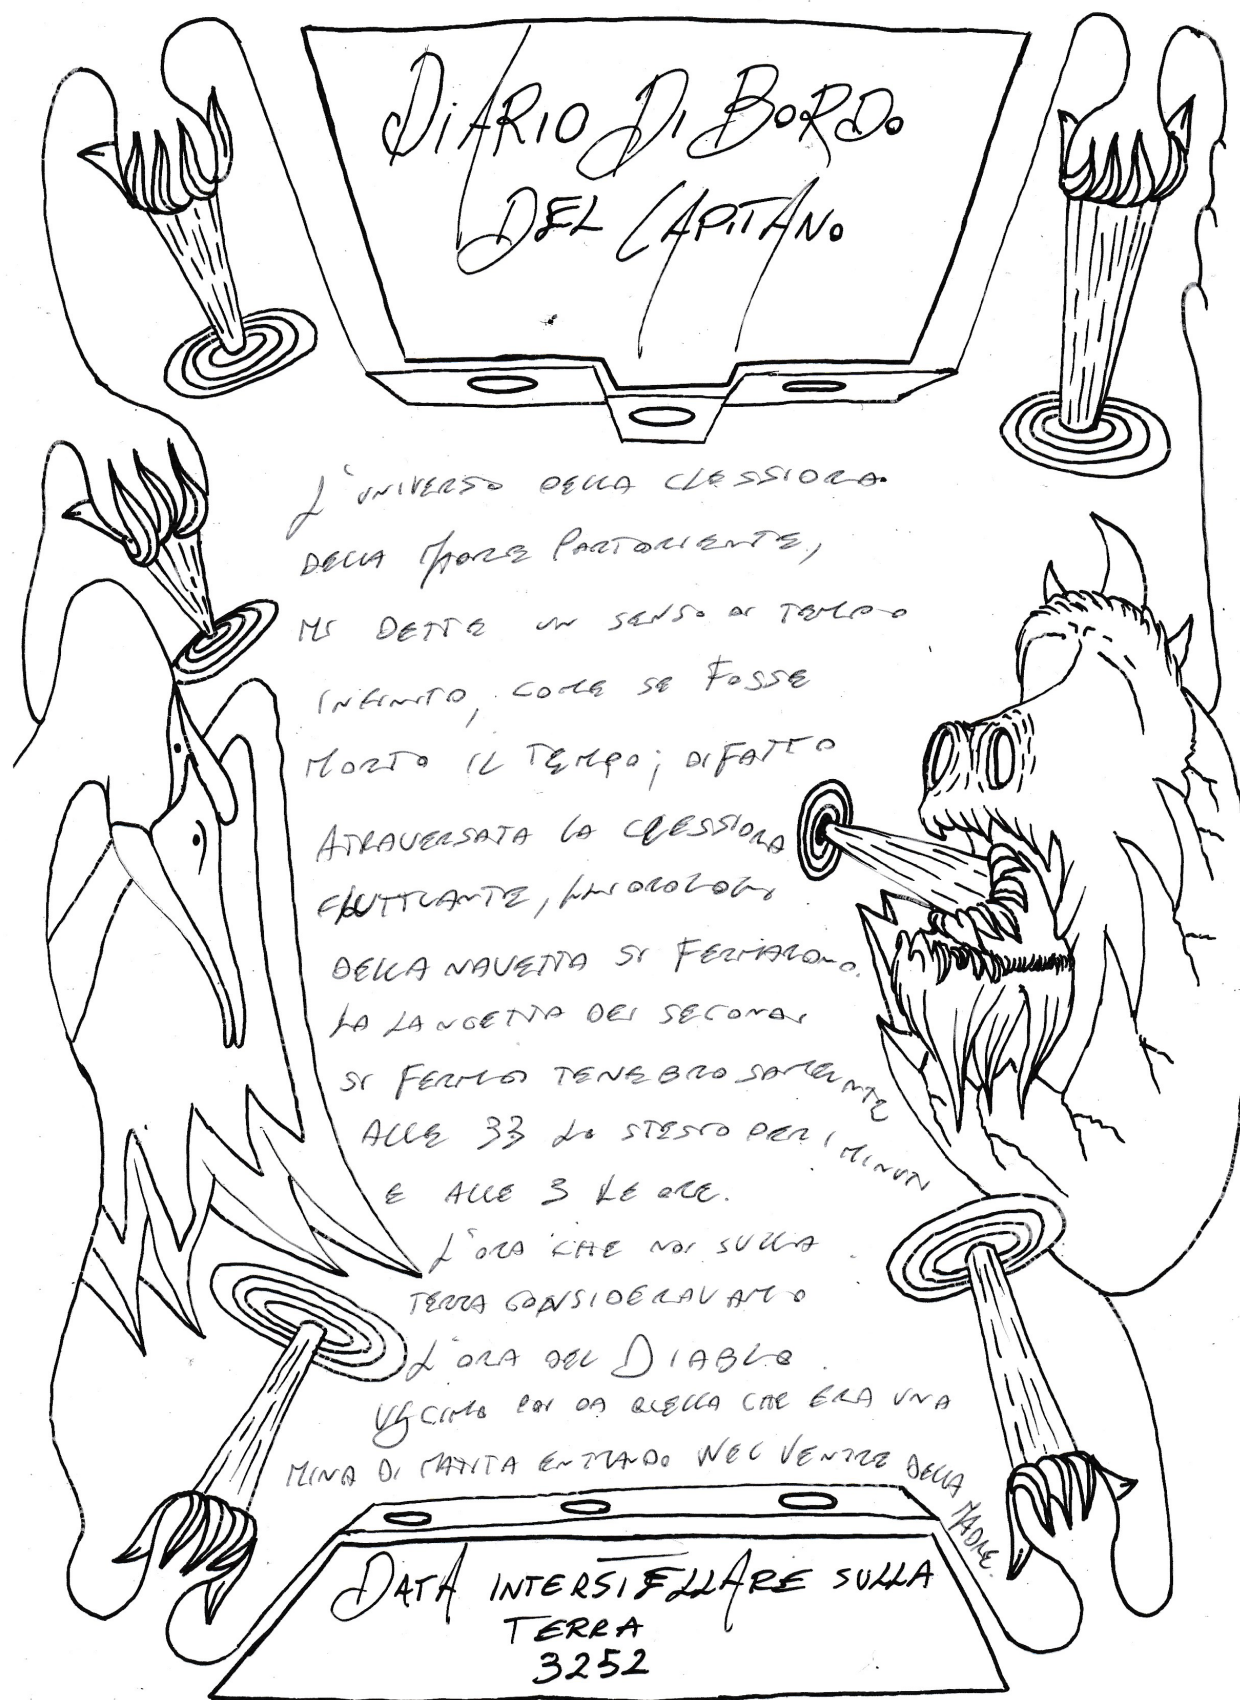 DIARIO DI BORDO
DEL CAPITANO
L'UNIVERSO DELLA CLESSIDRA
DELLA MADRE PARTORIENTE,
MI DETTE UN SENSO DI TEMPO
INFINITO, COME SE FOSSE
MORTO IL TEMPO; DI FATTO
ATRAVERSATA LA CLESSIDRA
FLUTTUANTE, GLI OROLOGI
DELLA NAVETTA SI FERMARONO.
LA LANCETTA DEI SECONDI
SI FERMÒ TENEBROSAMENTE
ALLE 33 LO STESSO PER I MINUTI
E ALLE 3 LE ORE.
L'ORA CHE NOI SULLA
TERRA CONSIDERAVAMO
L'ORA DEL DIABLO.
USCIMO POI DA QUELLA CHE ERA UNA
MINA DI MATITA ENTRANDO NEL VENTRE DELLA MADRE.
DATA INTERSTELLARE SULLA
TERRA
3252